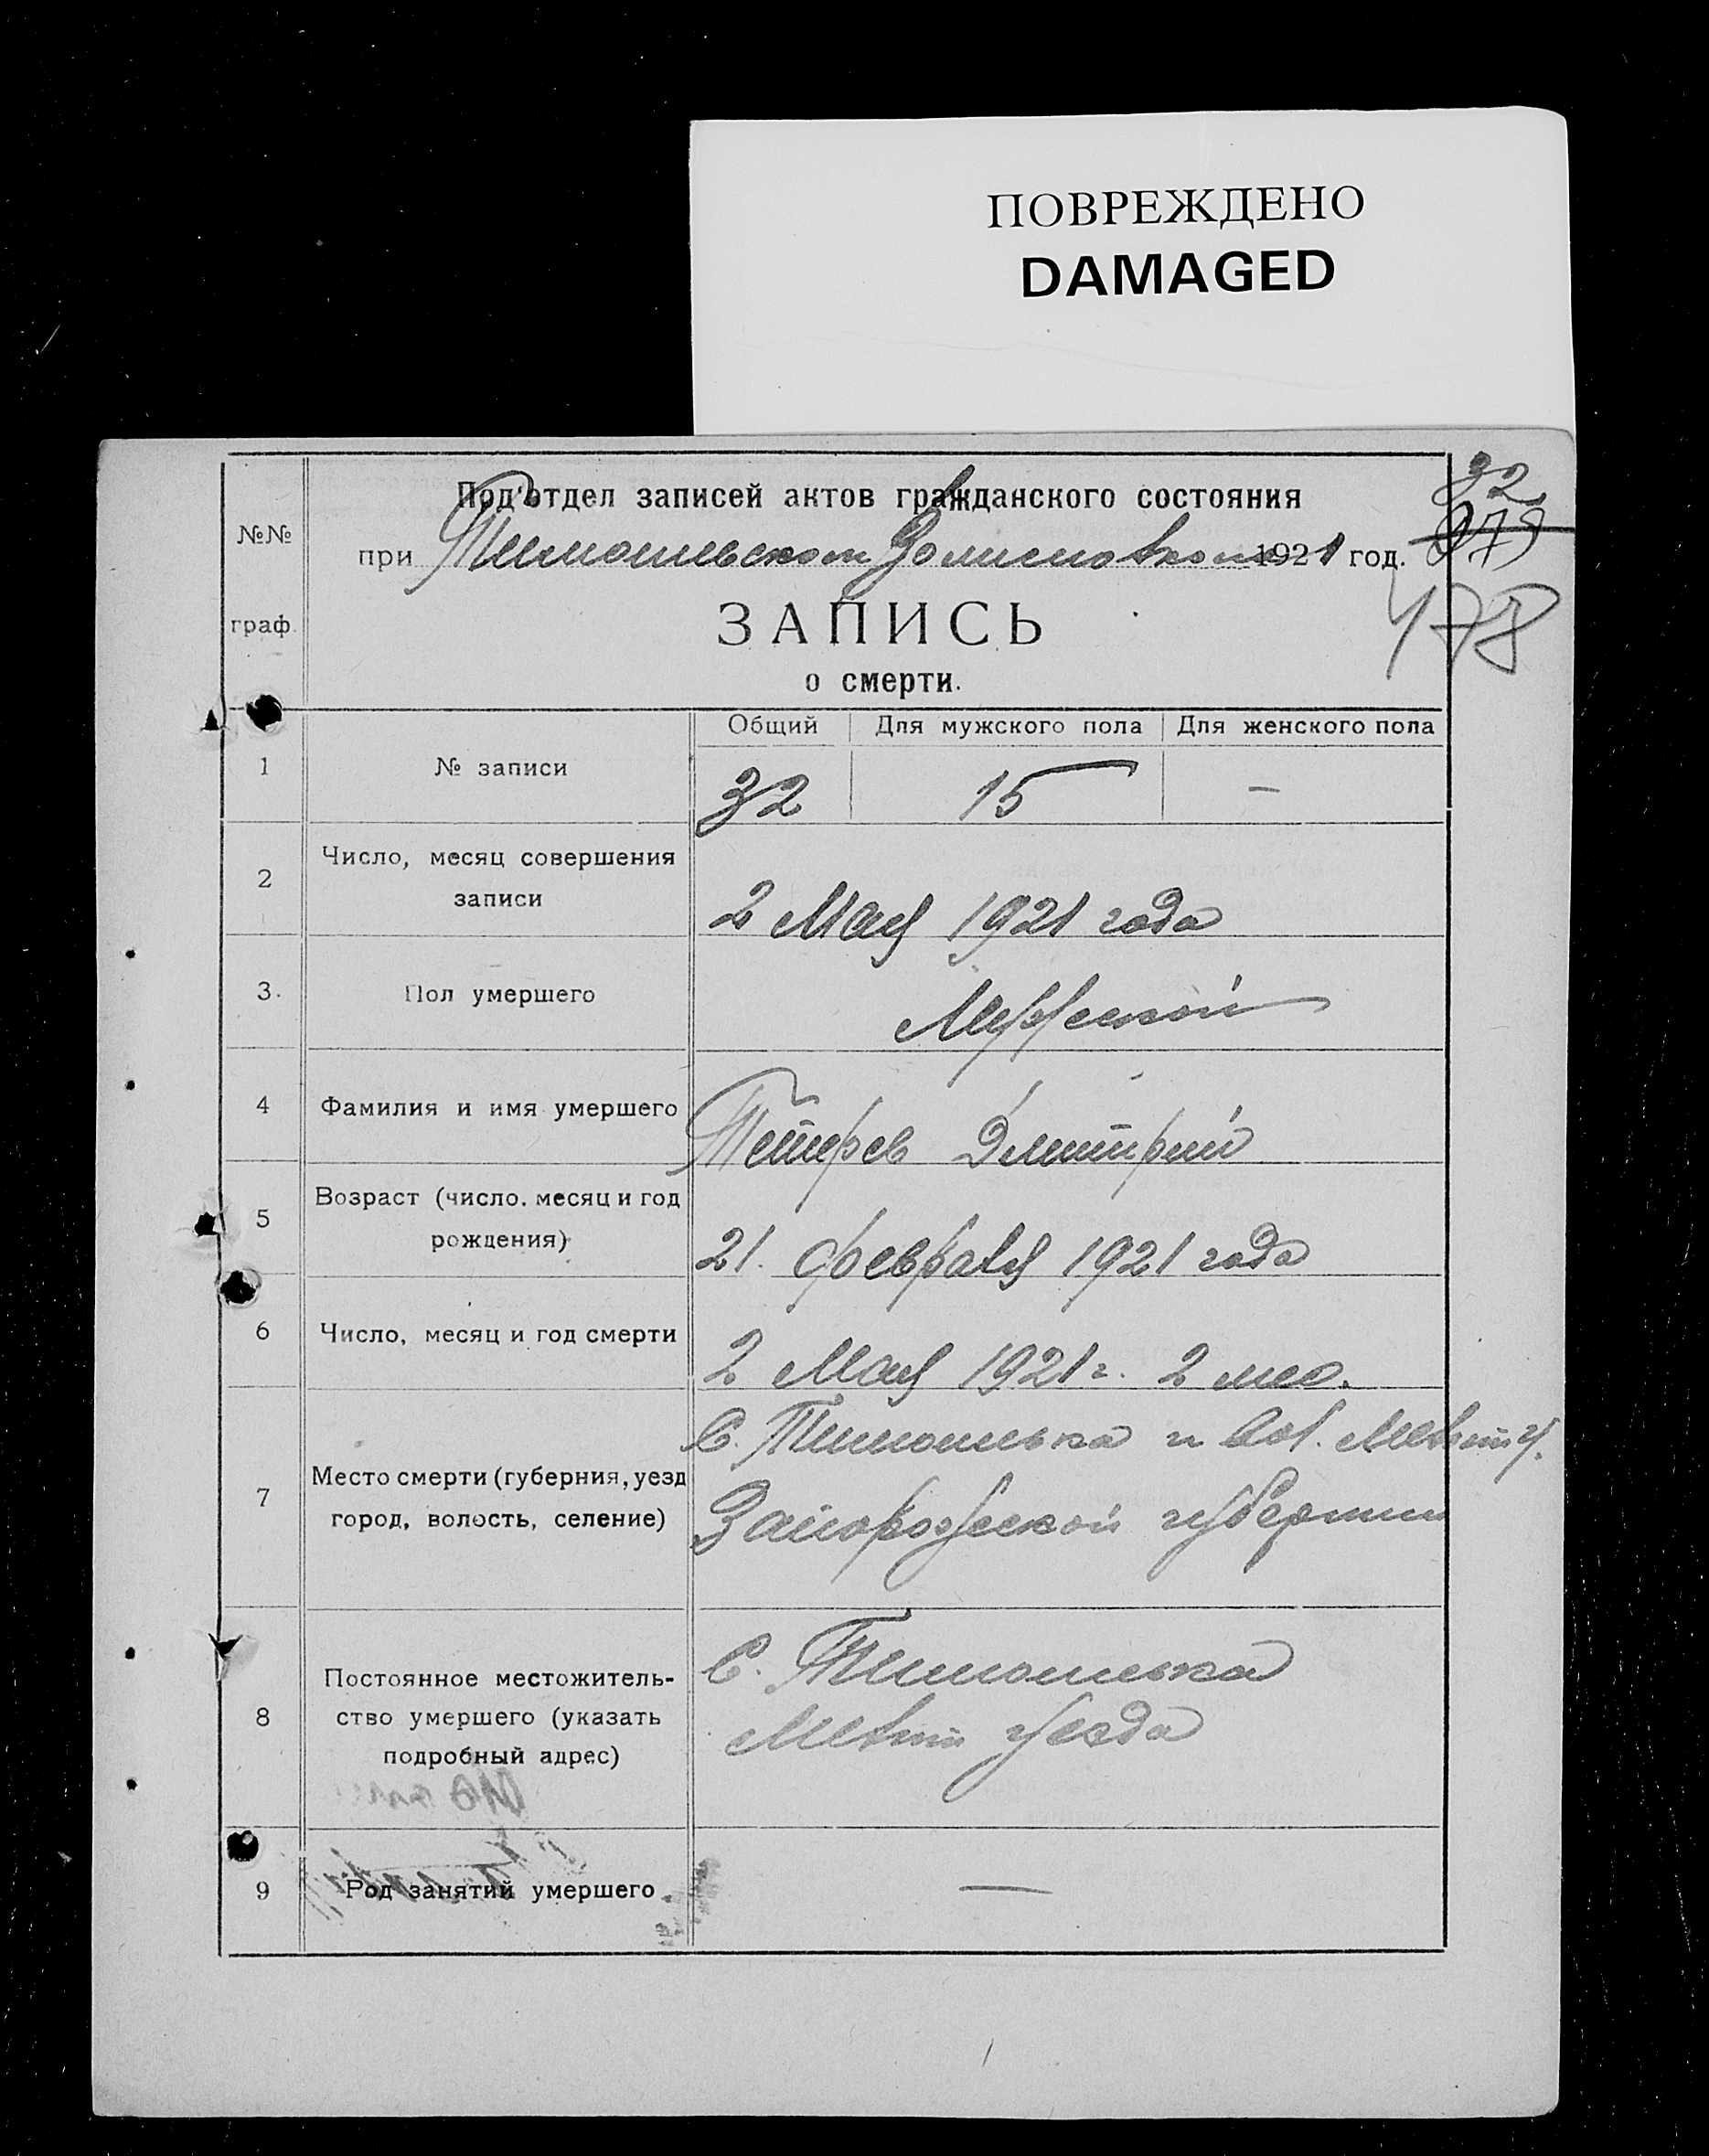 ПОВРЕЖДЕНО
DAMAGED
32
Под'отдел записей актов гражданского состояния
№№ граф.
при Тимошевском Волисполкоме 1921 год.
478
ЗАПИСЬ
о смерти.
Общий Для мужского пола Для женского пола
1 № записи 32 15 —
2 Число, месяц совершения
записи 2 Мая 1921 года
3. Пол умершего Мужской
4 Фамилия и имя умершего Тетерев Дмитрий
5 Возраст (число, месяц и год
рождения) 21. февраля 1921 года
6 Число, месяц и год смерти 2 Мая 1921 г. 2 мес.
С. Тимошевка и вол. Мелит у.
7 Место смерти (губерния, уезд
город, волость, селение) Запорожской губернии
С. Тимошевка
8 Постоянное местожитель-
ство умершего (указать Мелит уезда
подробный адрес)
9 Род занятий умершего. —